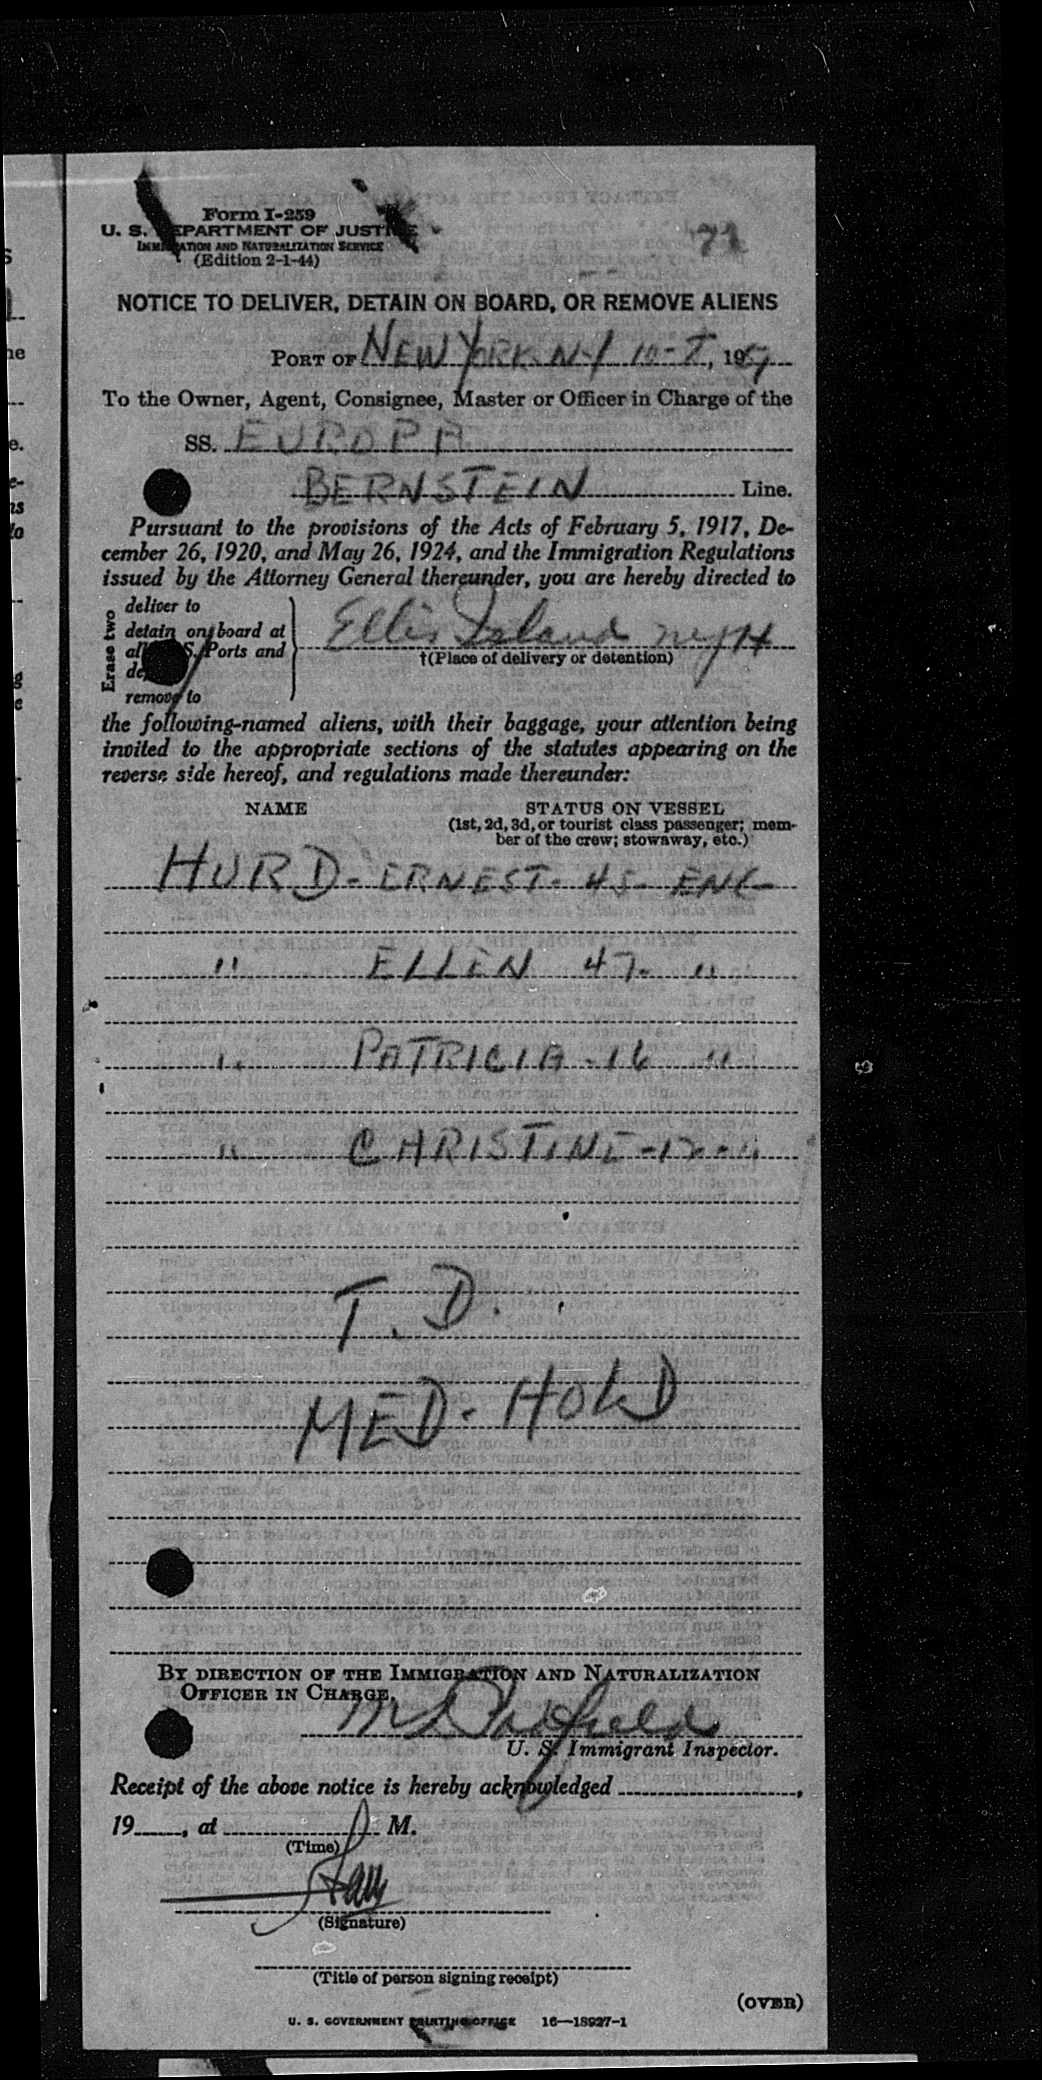 Form I-259
U. S. DEPARTMENT OF JUSTICE
IMMIGRATION AND NATURALIZATION SERVICE
(Edition 2-1-44)
NOTICE TO DELIVER, DETAIN ON BOARD, OR REMOVE ALIENS
PORT OF NEW YORK N-Y 10-7, 19
To the Owner, Agent, Consignee, Master or Officer in Charge of the
SS. EUROPA
BERNSTEIN Line.
Pursuant to the provisions of the Acts of February 5, 1917, De-
cember 26, 1920, and May 26, 1924, and the Immigration Regulations
issued by the Attorney General thereunder, you are hereby directed to
Erase two
deliver to
detain on board at
all U. S. Ports and
remove to
Ellis Island
†(Place of delivery or detention)
the following-named aliens, with their baggage, your attention being
invited to the appropriate sections of the statutes appearing on the
reverse side hereof, and regulations made thereunder:
NAME STATUS ON VESSEL
(1st, 2d, 3d, or tourist class passenger; mem-
ber of the crew; stowaway, etc.)
HURD - ERNEST - 45 - ENG
" ELLEN 47 - "
" PATRICIA - 16 "
" CHRISTINE - 12 - "
T. D.
MED - HOLD
BY DIRECTION OF THE IMMIGRATION AND NATURALIZATION
OFFICER IN CHARGE,
U. S. Immigrant Inspector.
Receipt of the above notice is hereby acknowledged ,
19 , at M.
(Time)
(Signature)
(Title of person signing receipt)
(OVER)
U. S. GOVERNMENT PRINTING OFFICE 16—18927-1